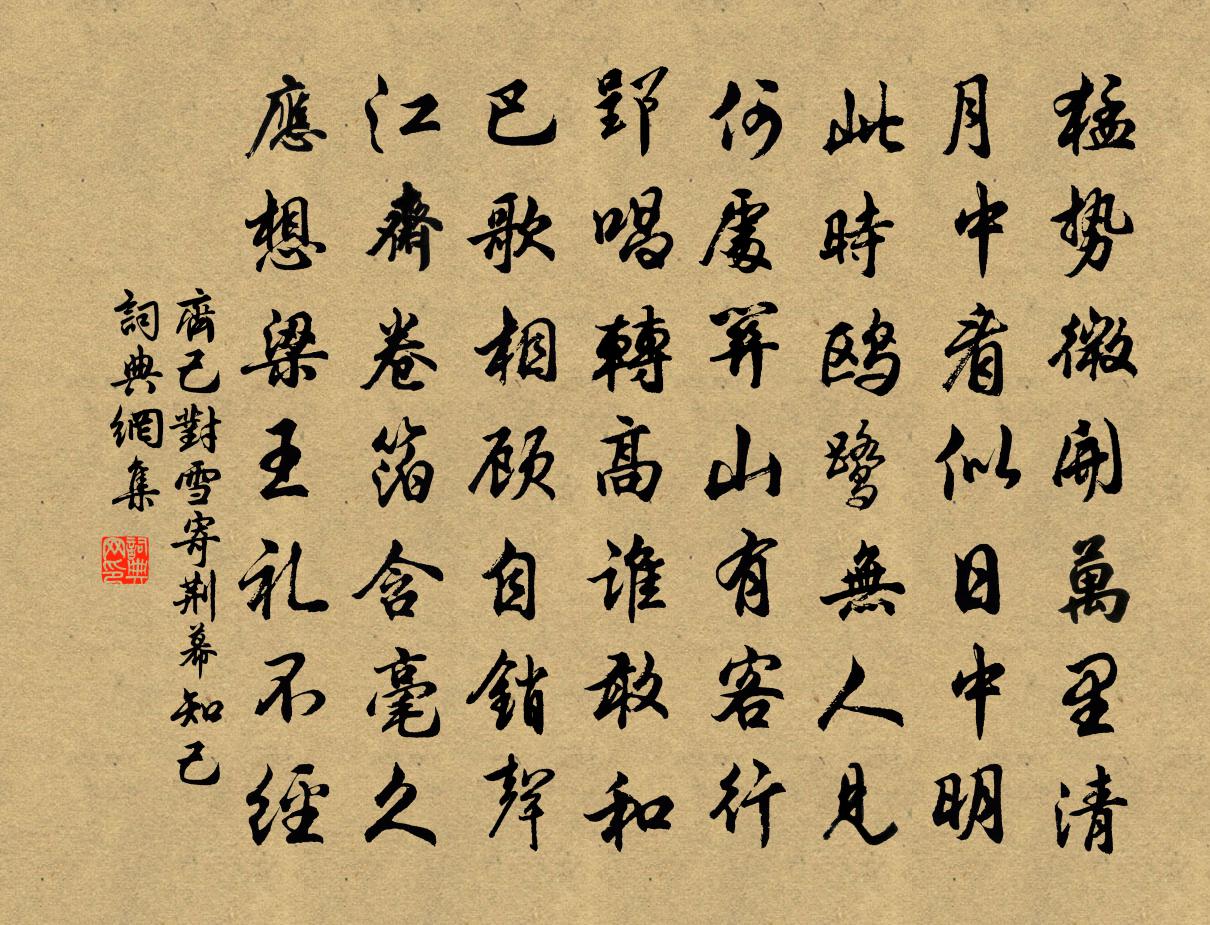 猛势微開萬里清
月中看似日中明
此時鸥鹭無人見
何處關山有客行
郢唱轉高誰敢和
巴歌相顾自銷聲
江齋卷箔含毫久
應想梁王礼不經
齊己對雪寄荆幕知己
詞典網集
詞典网印